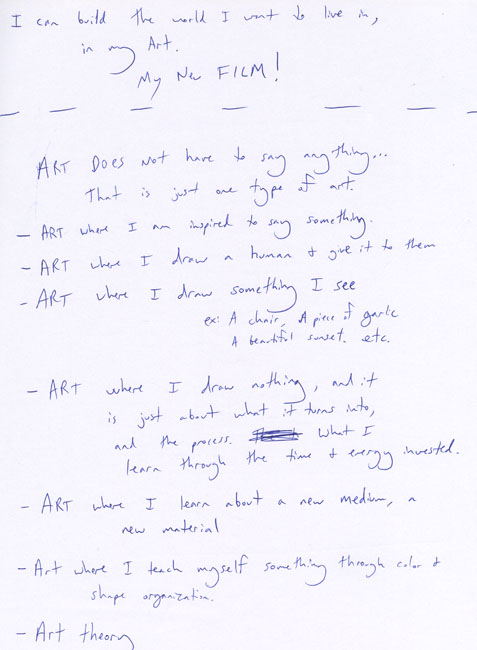 I can build the world I want to live in,
in my Art.
My New FILM!
ART DOES NOT have to say anything...
That is just one type of art.
- ART where I am inspired to say something.
- ART where I draw a human & give it to them
- ART where I draw something I see
ex: A chair, A piece of garlic
A beautiful sunset. etc.
- ART where I draw nothing, and it
is just about what it turns into,
and the process. What I
learn through the time & energy invested.
- ART where I learn about a new medium, a
new material
- Art where I teach myself something through color &
shape organization.
- Art theory